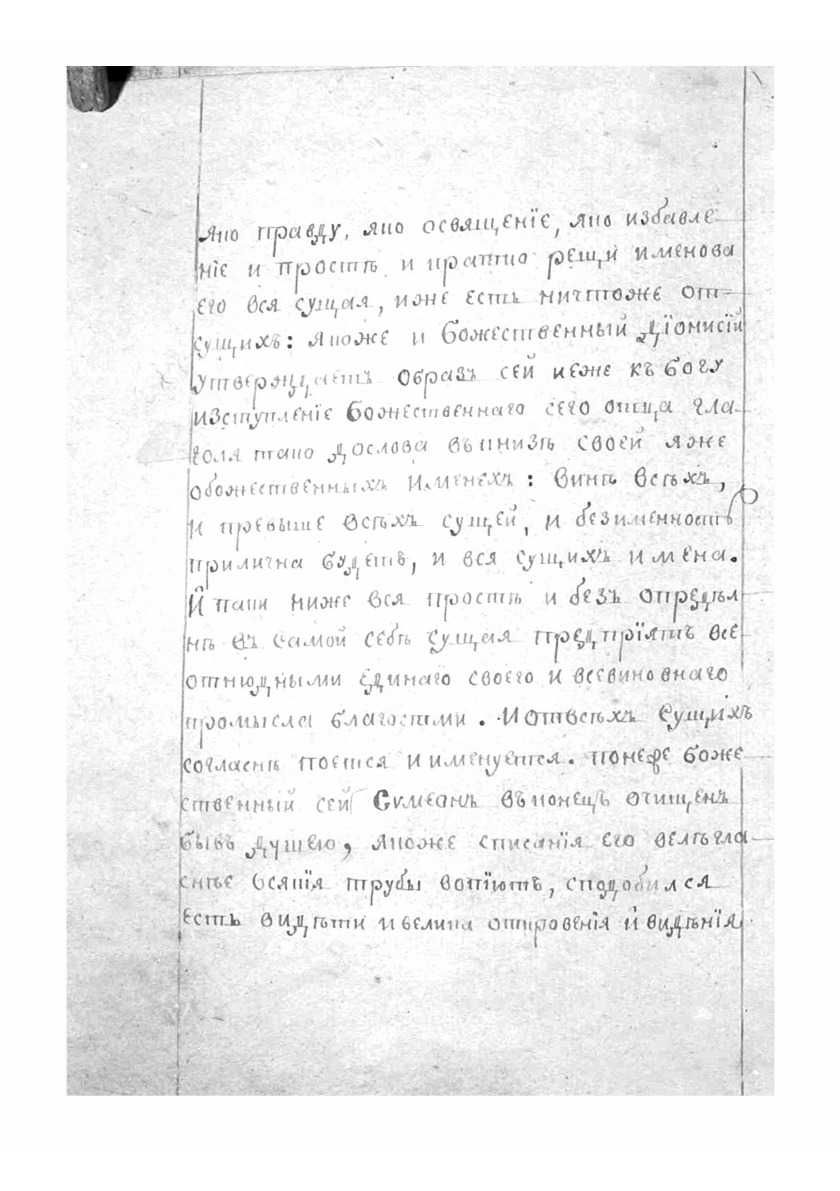 яко правду, яко освященїе, яко избавле
нїе и простѣ и кратко рещи именова
его вся сущая, иже есть ничтоже от
сущих: якоже и божественный Дїонисїй
утверждаетъ образъ сей иеже къ богу
изступленїе божественнаго сего отца гла
голя тако дослова вкнизѣ своей яже
обожественныхъ именехъ: винѣ всѣхъ,
и превыше всѣхъ сущей, и безименность
прилична будетъ, и вся сущихъ имена.
И паки ниже вся простѣ и безъ опредѣл
нѣ въ самой себѣ сущая предпрїятъ все
отнюдными единаго своего и всевиновнаго
промысла благостми. И отвсѣхъ сущихъ
согласнѣ поется и именуется. понеже боже
ственный сей Сѵмеонъ вконецъ очищенъ
бывъ душею, якоже списанїя его велегла
снѣе всякїя трубы вопїютъ, сподобился
есть видѣти и велика откровенїя и видѣнїя.